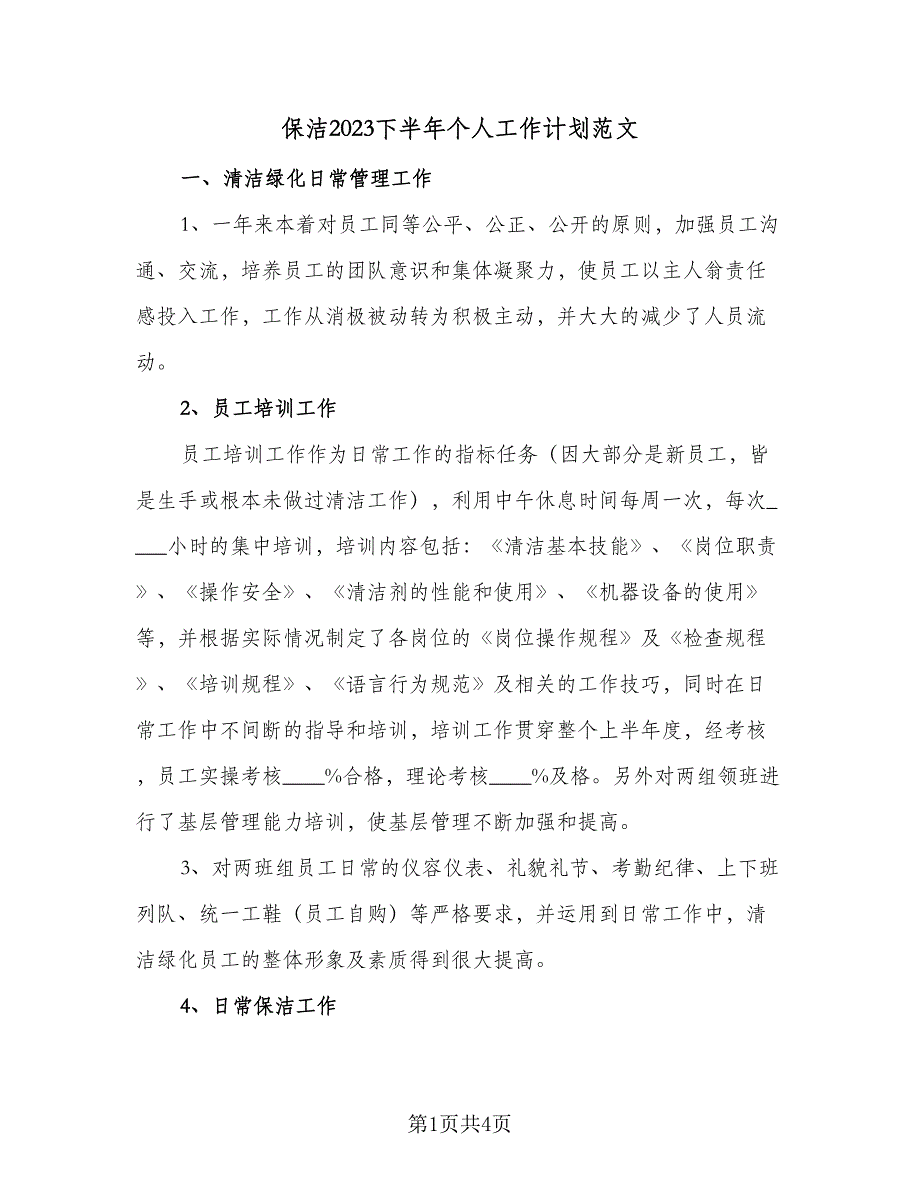 保洁2023下半年个人工作计划范文
一、清洁绿化日常管理工作
1、一年来本着对员工同等公平、公正、公开的原则，加强员工沟
通、交流，培养员工的团队意识和集体凝聚力，使员工以主人翁责任
感投入工作，工作从消极被动转为积极主动，并大大的减少了人员流
动。
2、员工培训工作
员工培训工作作为日常工作的指标任务（因大部分是新员工，皆
是生手或根本未做过清洁工作），利用中午休息时间每周一次，每次_
___小时的集中培训，培训内容包括：《清洁基本技能》、《岗位职责
》、《操作安全》、《清洁剂的性能和使用》、《机器设备的使用》
等，并根据实际情况制定了各岗位的《岗位操作规程》及《检查规程
》、《培训规程》、《语言行为规范》及相关的工作技巧，同时在日
常工作中不间断的指导和培训，培训工作贯穿整个上半年度，经考核
，员工实操考核____%合格，理论考核____%及格。另外对两组领班进
行了基层管理能力培训，使基层管理不断加强和提高。
3、对两班组员工日常的仪容仪表、礼貌礼节、考勤纪律、上下班
列队、统一工鞋（员工自购）等严格要求，并运用到日常工作中，清
洁绿化员工的整体形象及素质得到很大提高。
4、日常保洁工作
第1页共4页